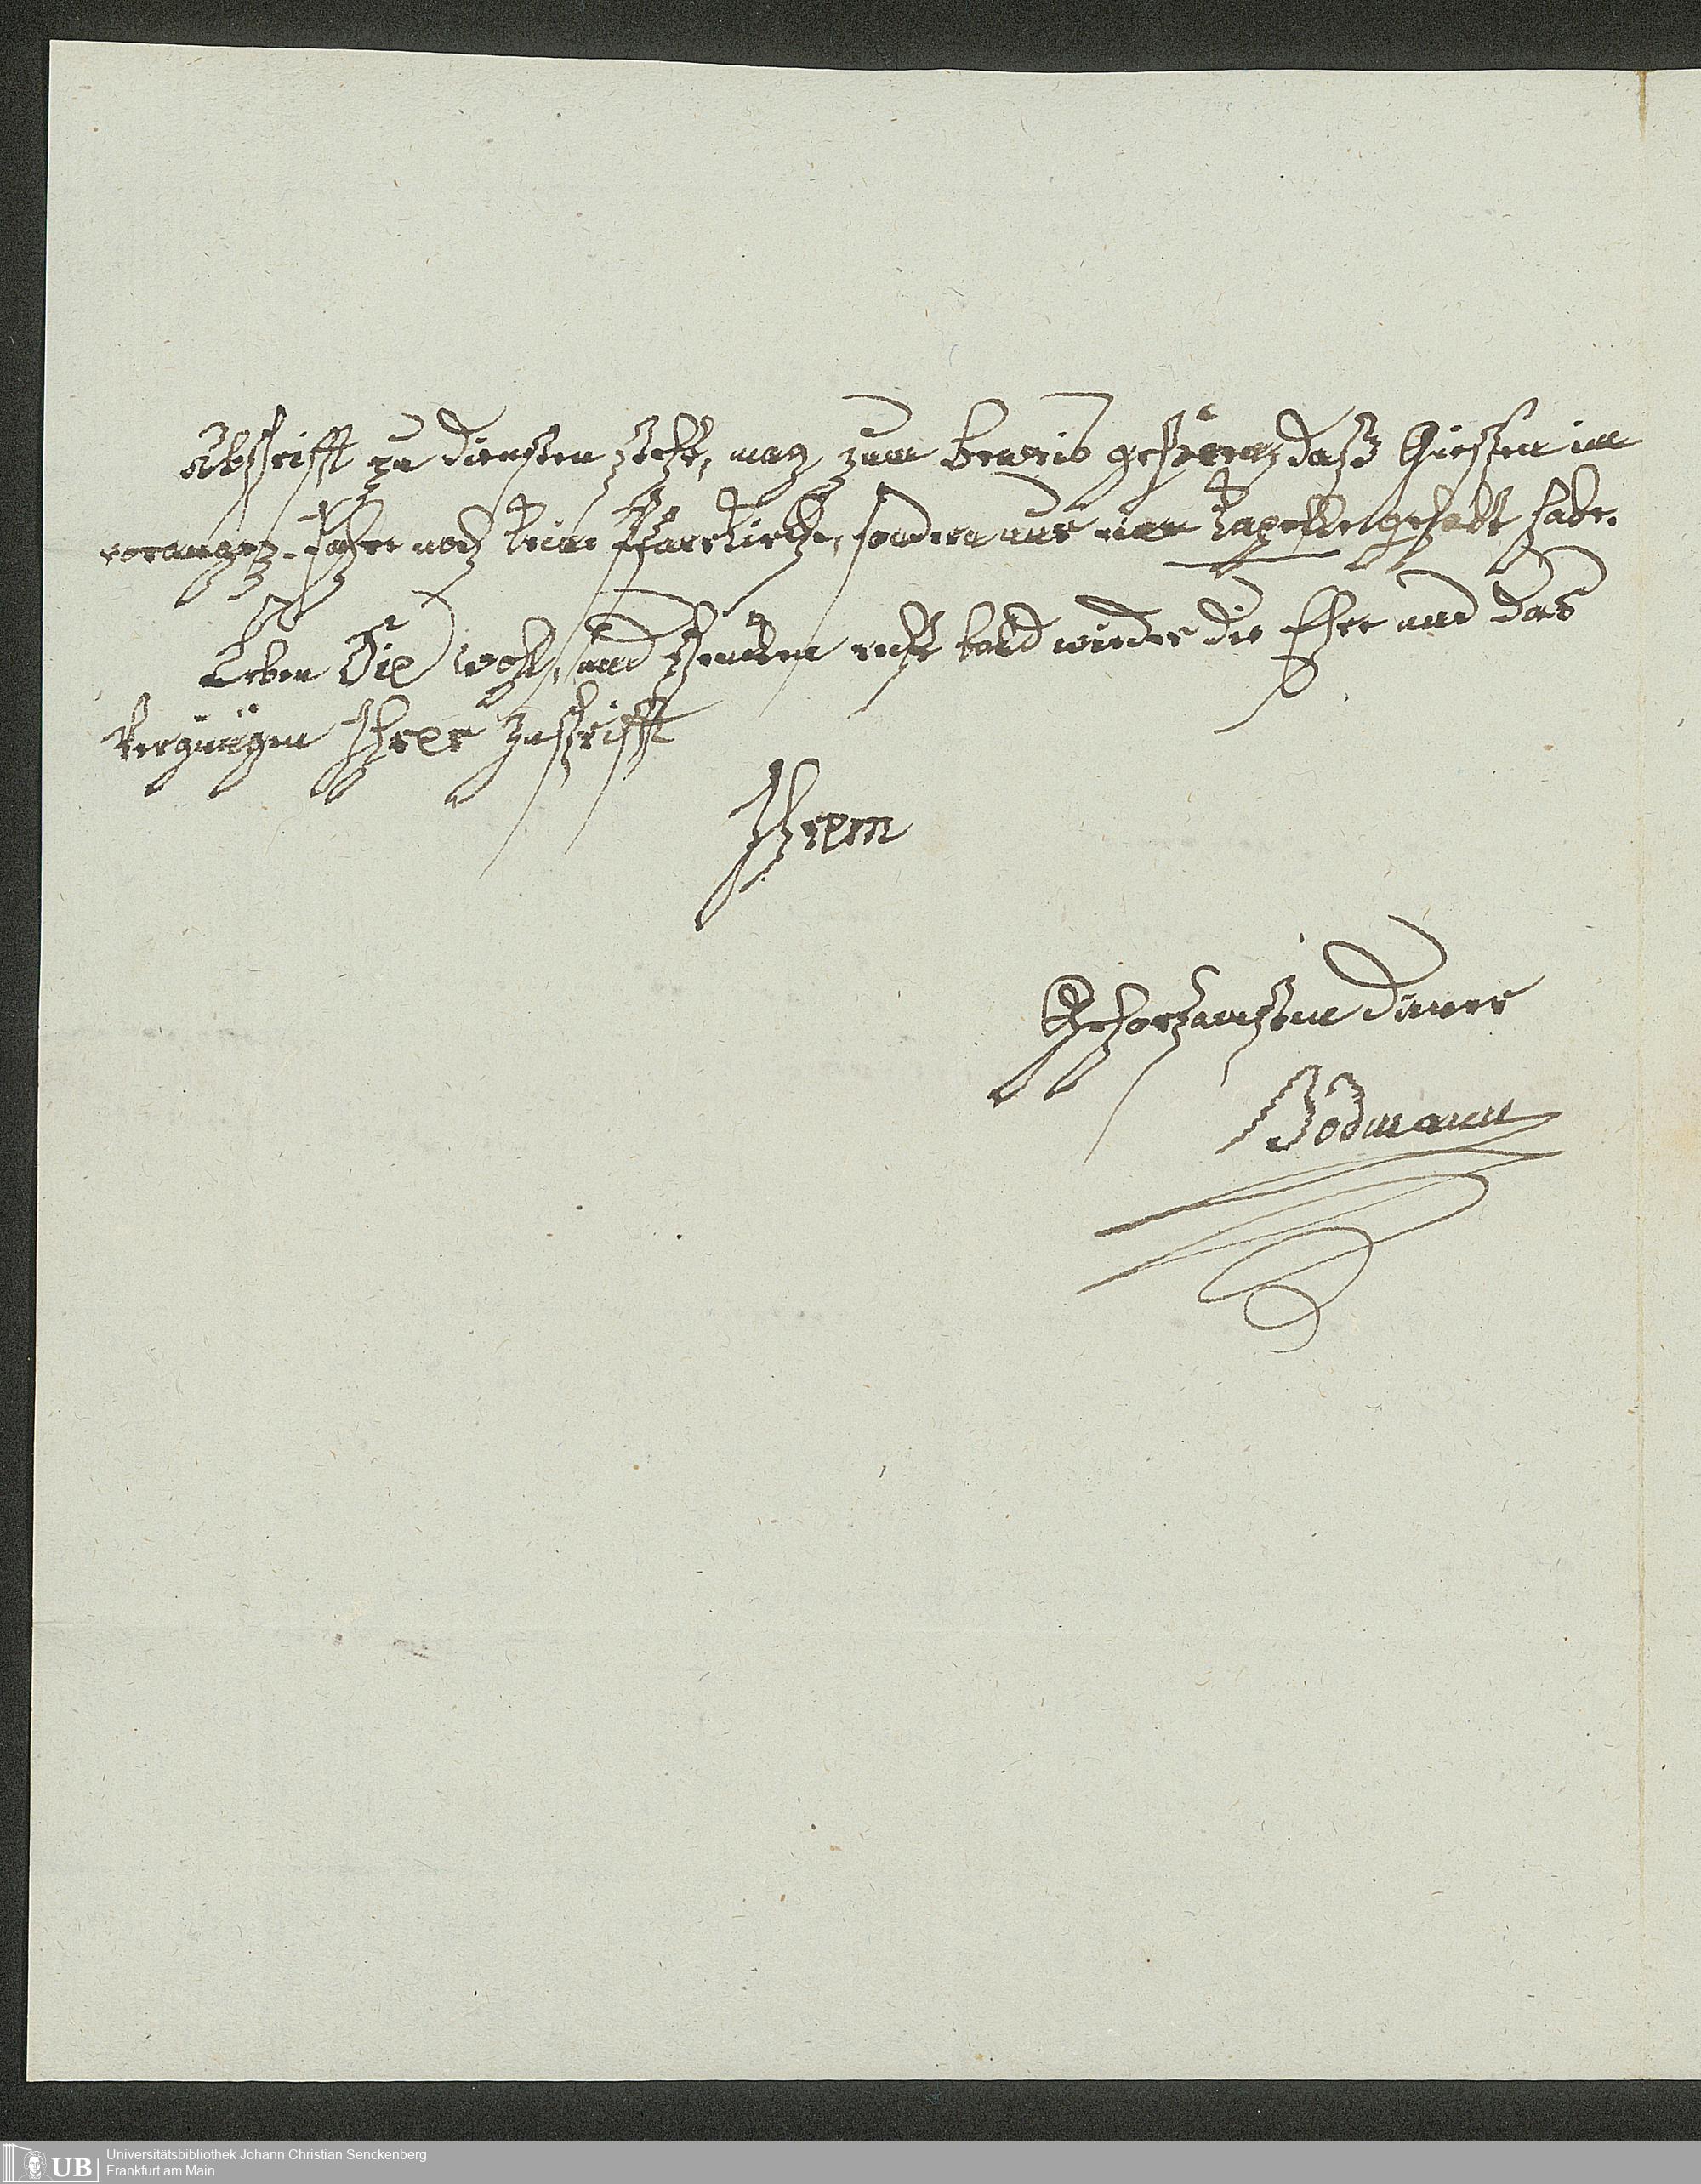 Abschrifft zu diensten steht, mag zum beweis gehören, daß Giessen im
vorangez. Jahre noch keine Pfarrkirche, sondern nur eine Kapelle gehabt habe.
Leben Sie wohl, und schenken recht bald wieder die Ehre und das
Vergnügen Ihrer Zuschrifft
Ihrem
Gehorsamsten diener
Bodmann
UB Universitätsbibliothek Johann Christian Senckenberg
Frankfurt am Main